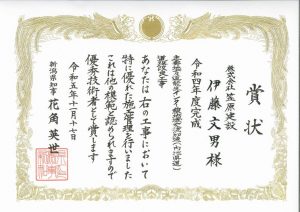 賞状
株式会社笠原建設
伊藤文男様
令和四年度完成
道路改良工事
あなたは右の工事において
特に優れた施工管理を行いました
これは他の模範と認められますので
優秀技術者として賞します
令和五年十一月十七日
新潟県知事 花角英世